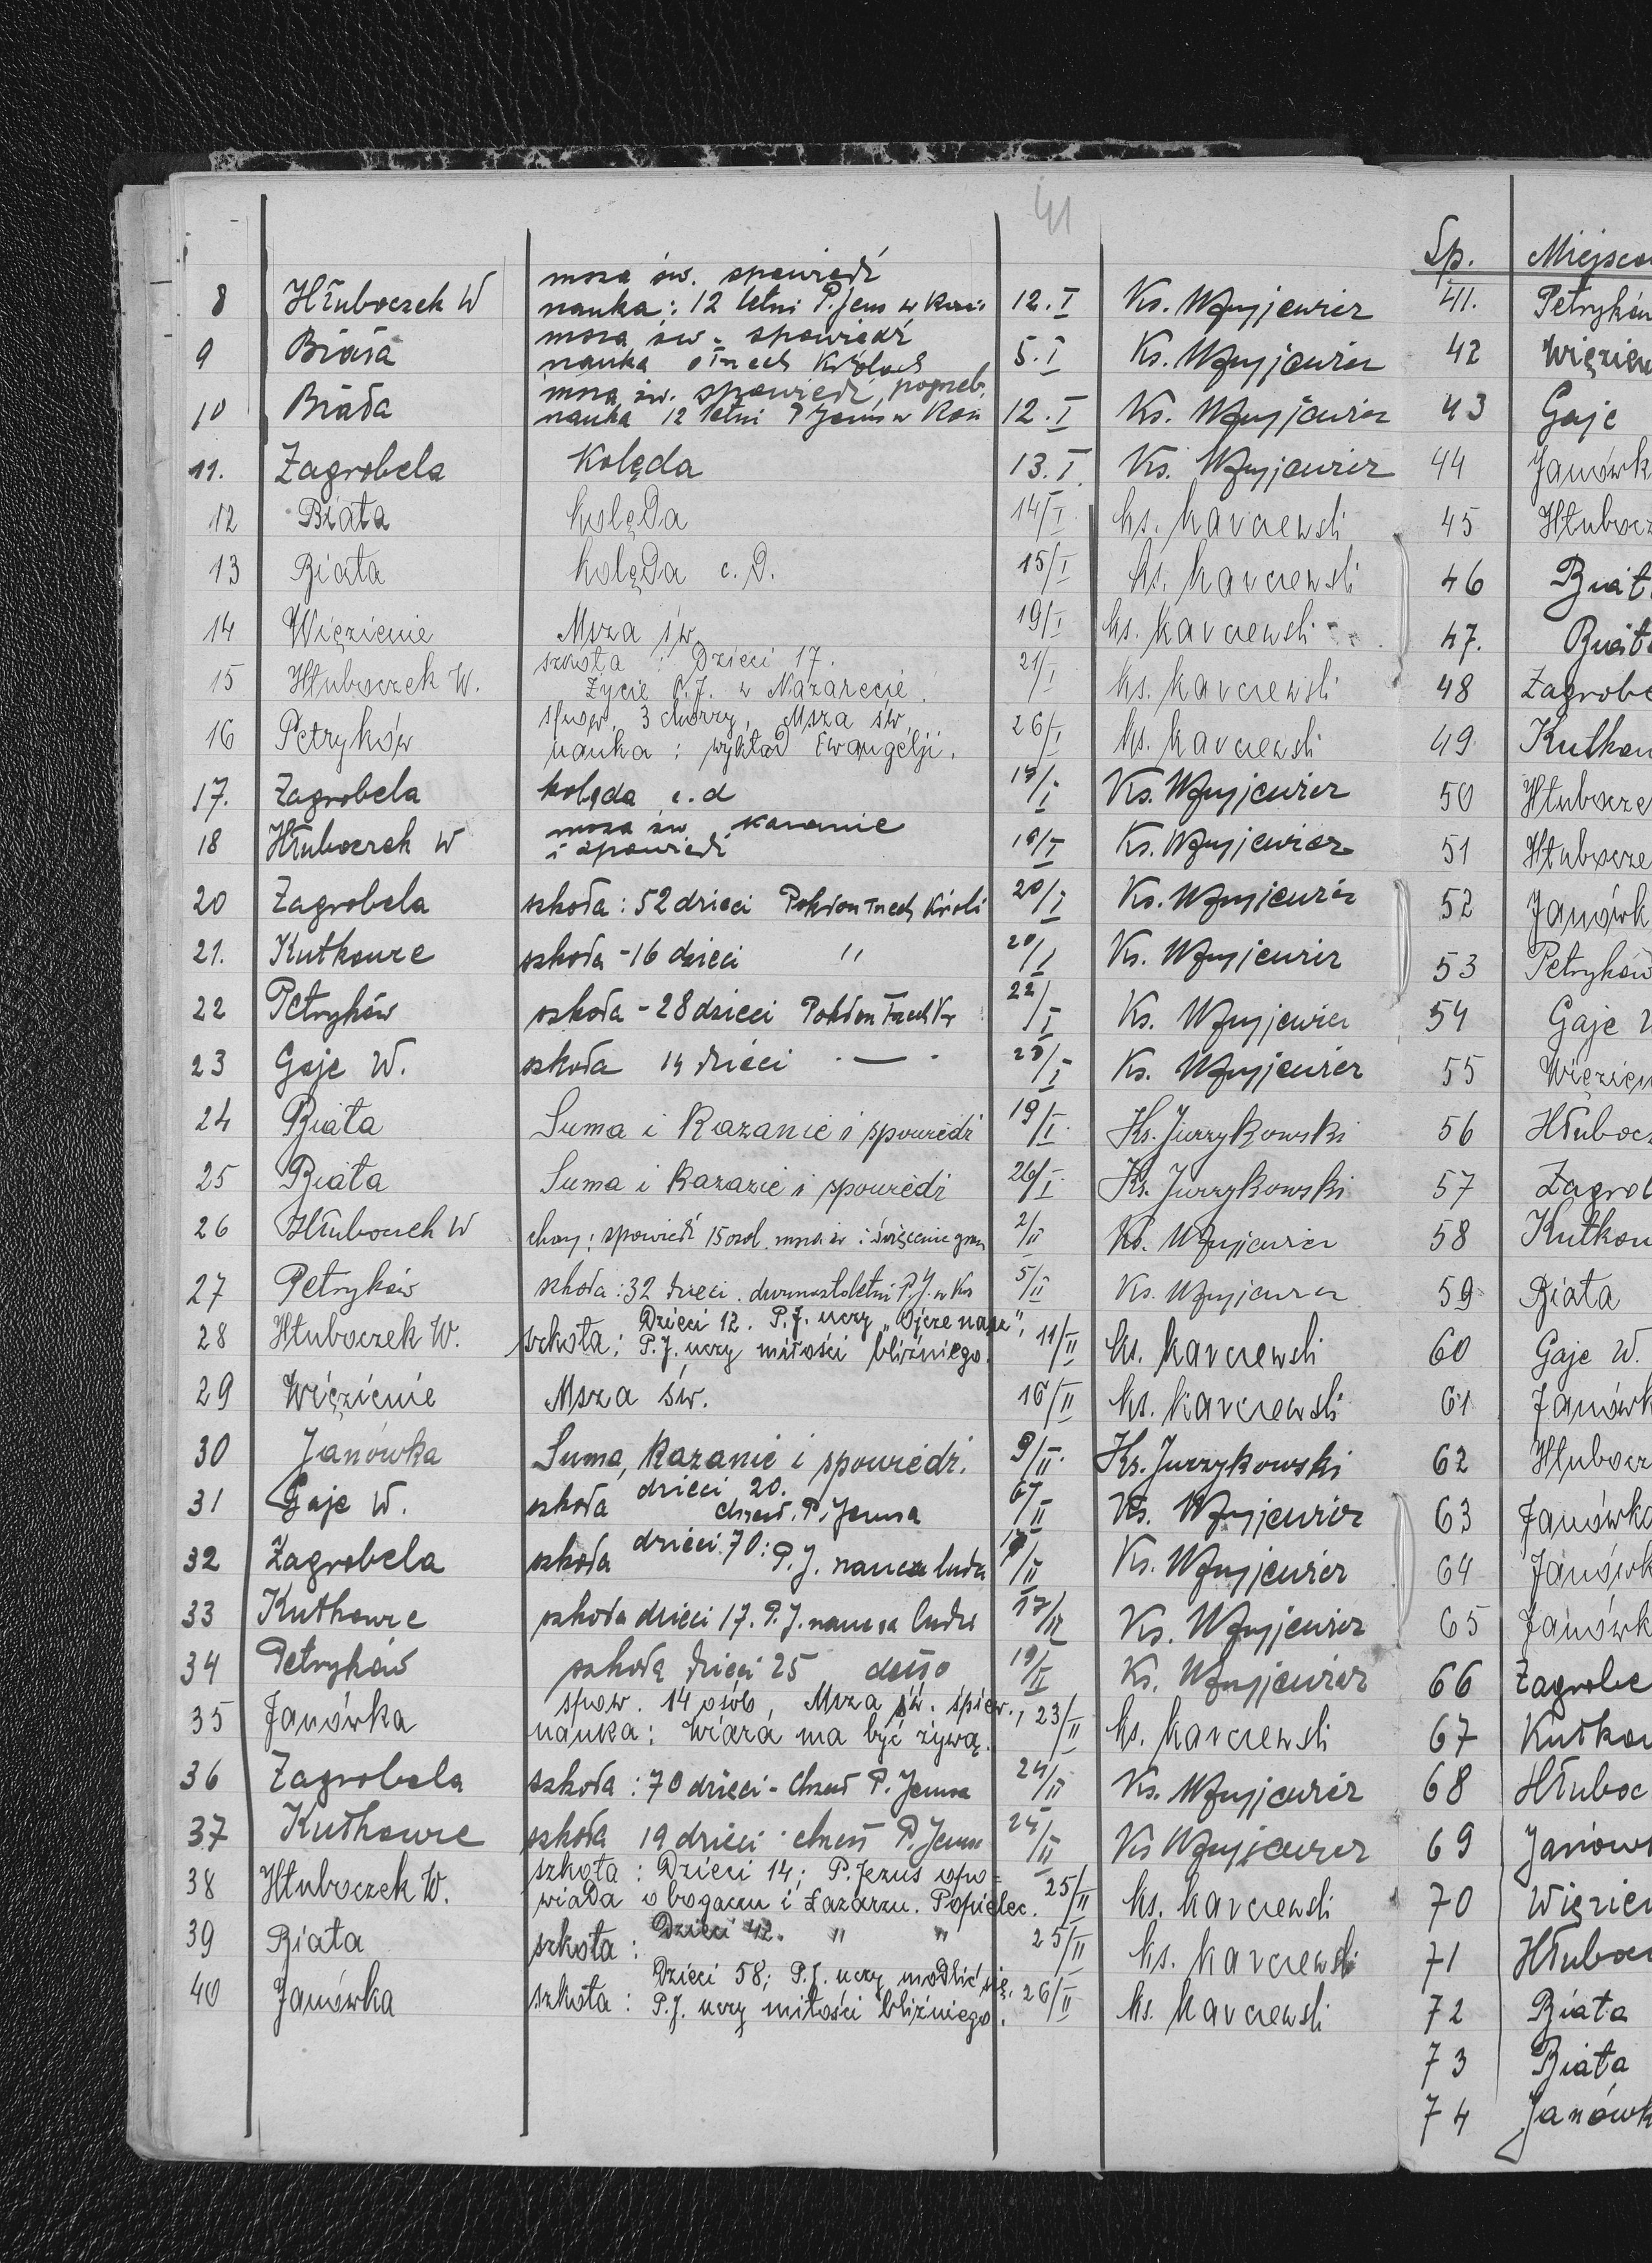 41
msza św. spowiedź
8 Hłuboczek W nauka: 12 letni P. Jezus w Kości 12.I Ks.
msza św. spowiedź
9 Biała nauka o Trzech Królach 5.I Ks.
msza św. spowiedź, pogrzeb.
10 Biała nauka 12 letni P Jezus w Koś 12.I Ks.
11. Zagrobela Kolęda 13.I Ks.
12 Biała kolęda 14/I ks. Karczewski
13 Biała kolęda c.d. 15/I ks. Karczewski
14 Więzienie Msza św. 19/I ks. Karczewski
szkoła: Dzieci 17.
15 Hłuboczek W. Życie P.J. w Nazarecie. 21/I ks. Karczewski
spow. 3 chorzy, Msza św,
16 Petryków nauka: wykład Ewangelji. 26/I ks. Karczewski
17. Zagrobela kolęda c.d /I Ks.
msza św, kazanie
18 Hłuboczek W i spowiedź 19/I Ks.
20 Zagrobela szkoła: 52 dzieci Pokłon Trzech Króli 20/I Ks.
21. Kutkowce szkoła - 16 dzieci " 20/I Ks.
22 Petryków szkoła - 28 dzieci Pokłon Trzech Kr 22/I Ks.
23 Gaje W. szkoła 14 dzieci - — - 23/I Ks.
24 Biała Suma i Kazanie i spowiedź 19/I Ks. Jurzykowski
25 Biała Suma i Kazanie i spowiedź 26/I Ks. Jurzykowski
26 Hłuboczek W chory: spowiedź 15 osób. msza św i święcenie grom 2/II Ks.
27 Petryków szkoła: 32 dzieci. dwunastoletni P.J. w Koś 5/II Ks.
Dzieci 12. P.J. uczy „Ojcze nasz",
28 Hłuboczek W. szkoła: P.J. uczy miłości bliźniego. 11/II ks. Karczewski
29 Więzienie Msza św. 16/II ks. Karczewski
30 Janówka Suma, Kazanie i spowiedź. 9/II Ks. Jurzykowski
dzieci 20.
31 Gaje W. szkoła chrzest. P. Jezusa /II Ks.
dzieci 70:
32 Zagrobela szkoła P.J. naucza ludzi /II Ks.
33 Kutkowce szkoła dzieci 17. P.J. naucza ludzi 17/II Ks.
34 Petryków szkoła dzieci 25 detto 19/II Ks.
spow. 14 osób, Msza św. śpiew.,
35 Janówka nauka: Wiara ma być żywą. 23/II ks. Karczewski
36 Zagrobela szkoła: 70 dzieci - chrzest P. Jezusa 24/II Ks.
37 Kutkowce szkoła 19 dzieci - chrzest P. Jezus 24/II Ks
szkoła: Dzieci 14; P. Jezus opo-
38 Hłuboczek W. wiada o bogaczu i Łazarzu. Popielec. 25/II ks. Karczewski
Dzieci 42. " "
39 Biała szkoła: 25/II ks. Karczewski
Dzieci 58; P.J. uczy modlić się.
40 Janówka szkoła: P.J. uczy miłości bliźniego. 26/II ks. Karczewski
Lp. Miejsco
41. Petryków
42 Więzien
43 Gaje
44 Janówk
45 Hłubocz
46 Biał
47. Biał
48 Zagrobe
49 Kutkow
50 Hłubocze
51 Hłubocze
52 Janówk
53 Petryków
54 Gaje
55 Więzien
56 Hłubocz
57 Zagrob
58 Kutkow
59 Biała
60 Gaje W.
61 Janówk
62 Hłubocz
63 Janówka
64 Janówk
65 Janówk
66 Zagrobe
67 Kutkow
68 Hłuboc
69 Janówk
70 Więzien
71 Hłuboc
72 Biała
73 Biała
74 Janówk